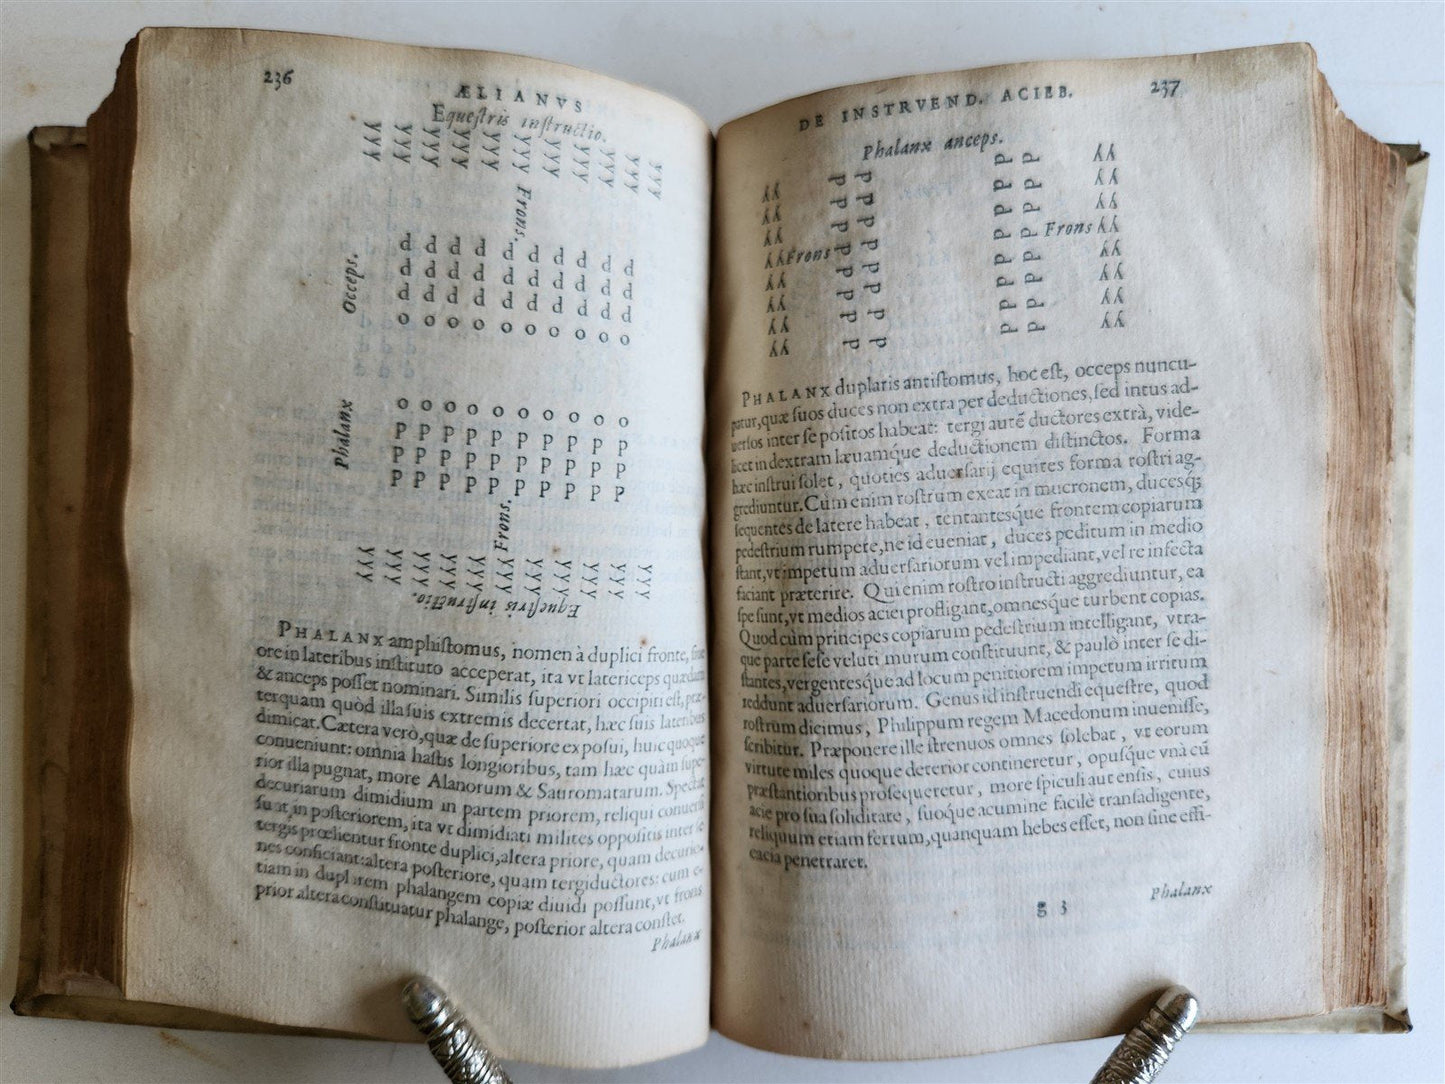 236
ÆLIANVS
Equeſtris inſtructio.
y y y y y y y y y y y
y y y y y y y y y y y
y y y y y y y y y y y
Frons.
Occeps.
d d d d d d d d d d
d d d d d d d d d d
d d d d d d d d d d
o o o o o o o o o o
Phalanx
o o o o o o o o o o
P P P P P P P P P P
P P P P P P P P P P
P P P P P P P P P P
Frons.
y y y y y y y y y y y
y y y y y y y y y y y
y y y y y y y y y y y
Equeſtris inſtructio.
PHALANX amphiſtomus, nomen à duplici fronte,
ore in lateribus inſtituto acceperat, ita vt latericeps quædam
& anceps poſſet nominari. Similis ſuperiori occipiti eſt, præ-
terquam quòd illa ſuis extremis decertat, hæc ſuis lateribus
dimicat. Cætera verò, quæ de ſuperiore expoſui, huic quoque
conueniunt: omnia haſtis longioribus, tam hæc quàm ſupe-
rior illa pugnat, more Alanorum & Sauromatarum. Spectat
decuriarum dimidium in partem priorem, reliqui conuerſi
ſunt in poſteriorem, ita vt dimidiati milites oppoſitis inter ſe
tergis prœlientur fronte duplici, altera priore, quam decurio-
nes conficiant: altera poſteriore, quam tergiductores: cum e-
tiam in duplarem phalangem copiæ diuidi poſſunt, vt frons
prior altera conſtituatur phalange, poſterior altera conſtet.
Phalanx
DE INSTRVEND. ACIEB. 237
Phalanx anceps.
Frons
Frons
PHALANX duplaris antiſtomus, hoc eſt, occeps nuncu-
patur, quæ ſuos duces non extra per deductiones, ſed intus ad-
uerſos inter ſe poſitos habeat: tergi autē ductores extrà, vide-
licet in dextram læuamque deductionem diſtinctos. Forma
hæc inſtrui ſolet, quoties aduerſarij equites forma roſtri ag-
grediuntur. Cùm enim roſtrum exeat in mucronem, duceſq;
ſequentes de latere habeat, tentantéſque frontem copiarum
pedeſtrium rumpere, ne id eueniat, duces peditum in medio
ſtant, vt impetum aduerſariorum vel impediant, vel re infecta
faciant præterire. Qui enim roſtro inſtructi aggrediuntur, ea
ſpe ſunt, vt medios aciei profligant, omneſque turbent copias.
Quod cùm principes copiarum pedeſtrium intelligant, vtra-
que parte ſeſe veluti murum conſtituunt, & paulò inter ſe di-
ſtantes, vergentéſque ad locum penitiorem impetum irritum
reddunt aduerſariorum. Genus id inſtruendi equeſtre, quod
roſtrum dicimus, Philippum regem Macedonum inueniſſe,
ſcribitur. Præponere ille ſtrenuos omnes ſolebat, vt eorum
virtute miles quoque deterior contineretur, opuſque vnà cū
præſtantioribus proſequeretur, more ſpiculi aut enſis, cuius
acie pro ſua ſoliditate, ſuoque acumine facilè tranſadigente,
reliquum etiam ferrum, quanquam hebes eſſet, non ſine effi-
cacia penetraret.
g 3
Phalanx